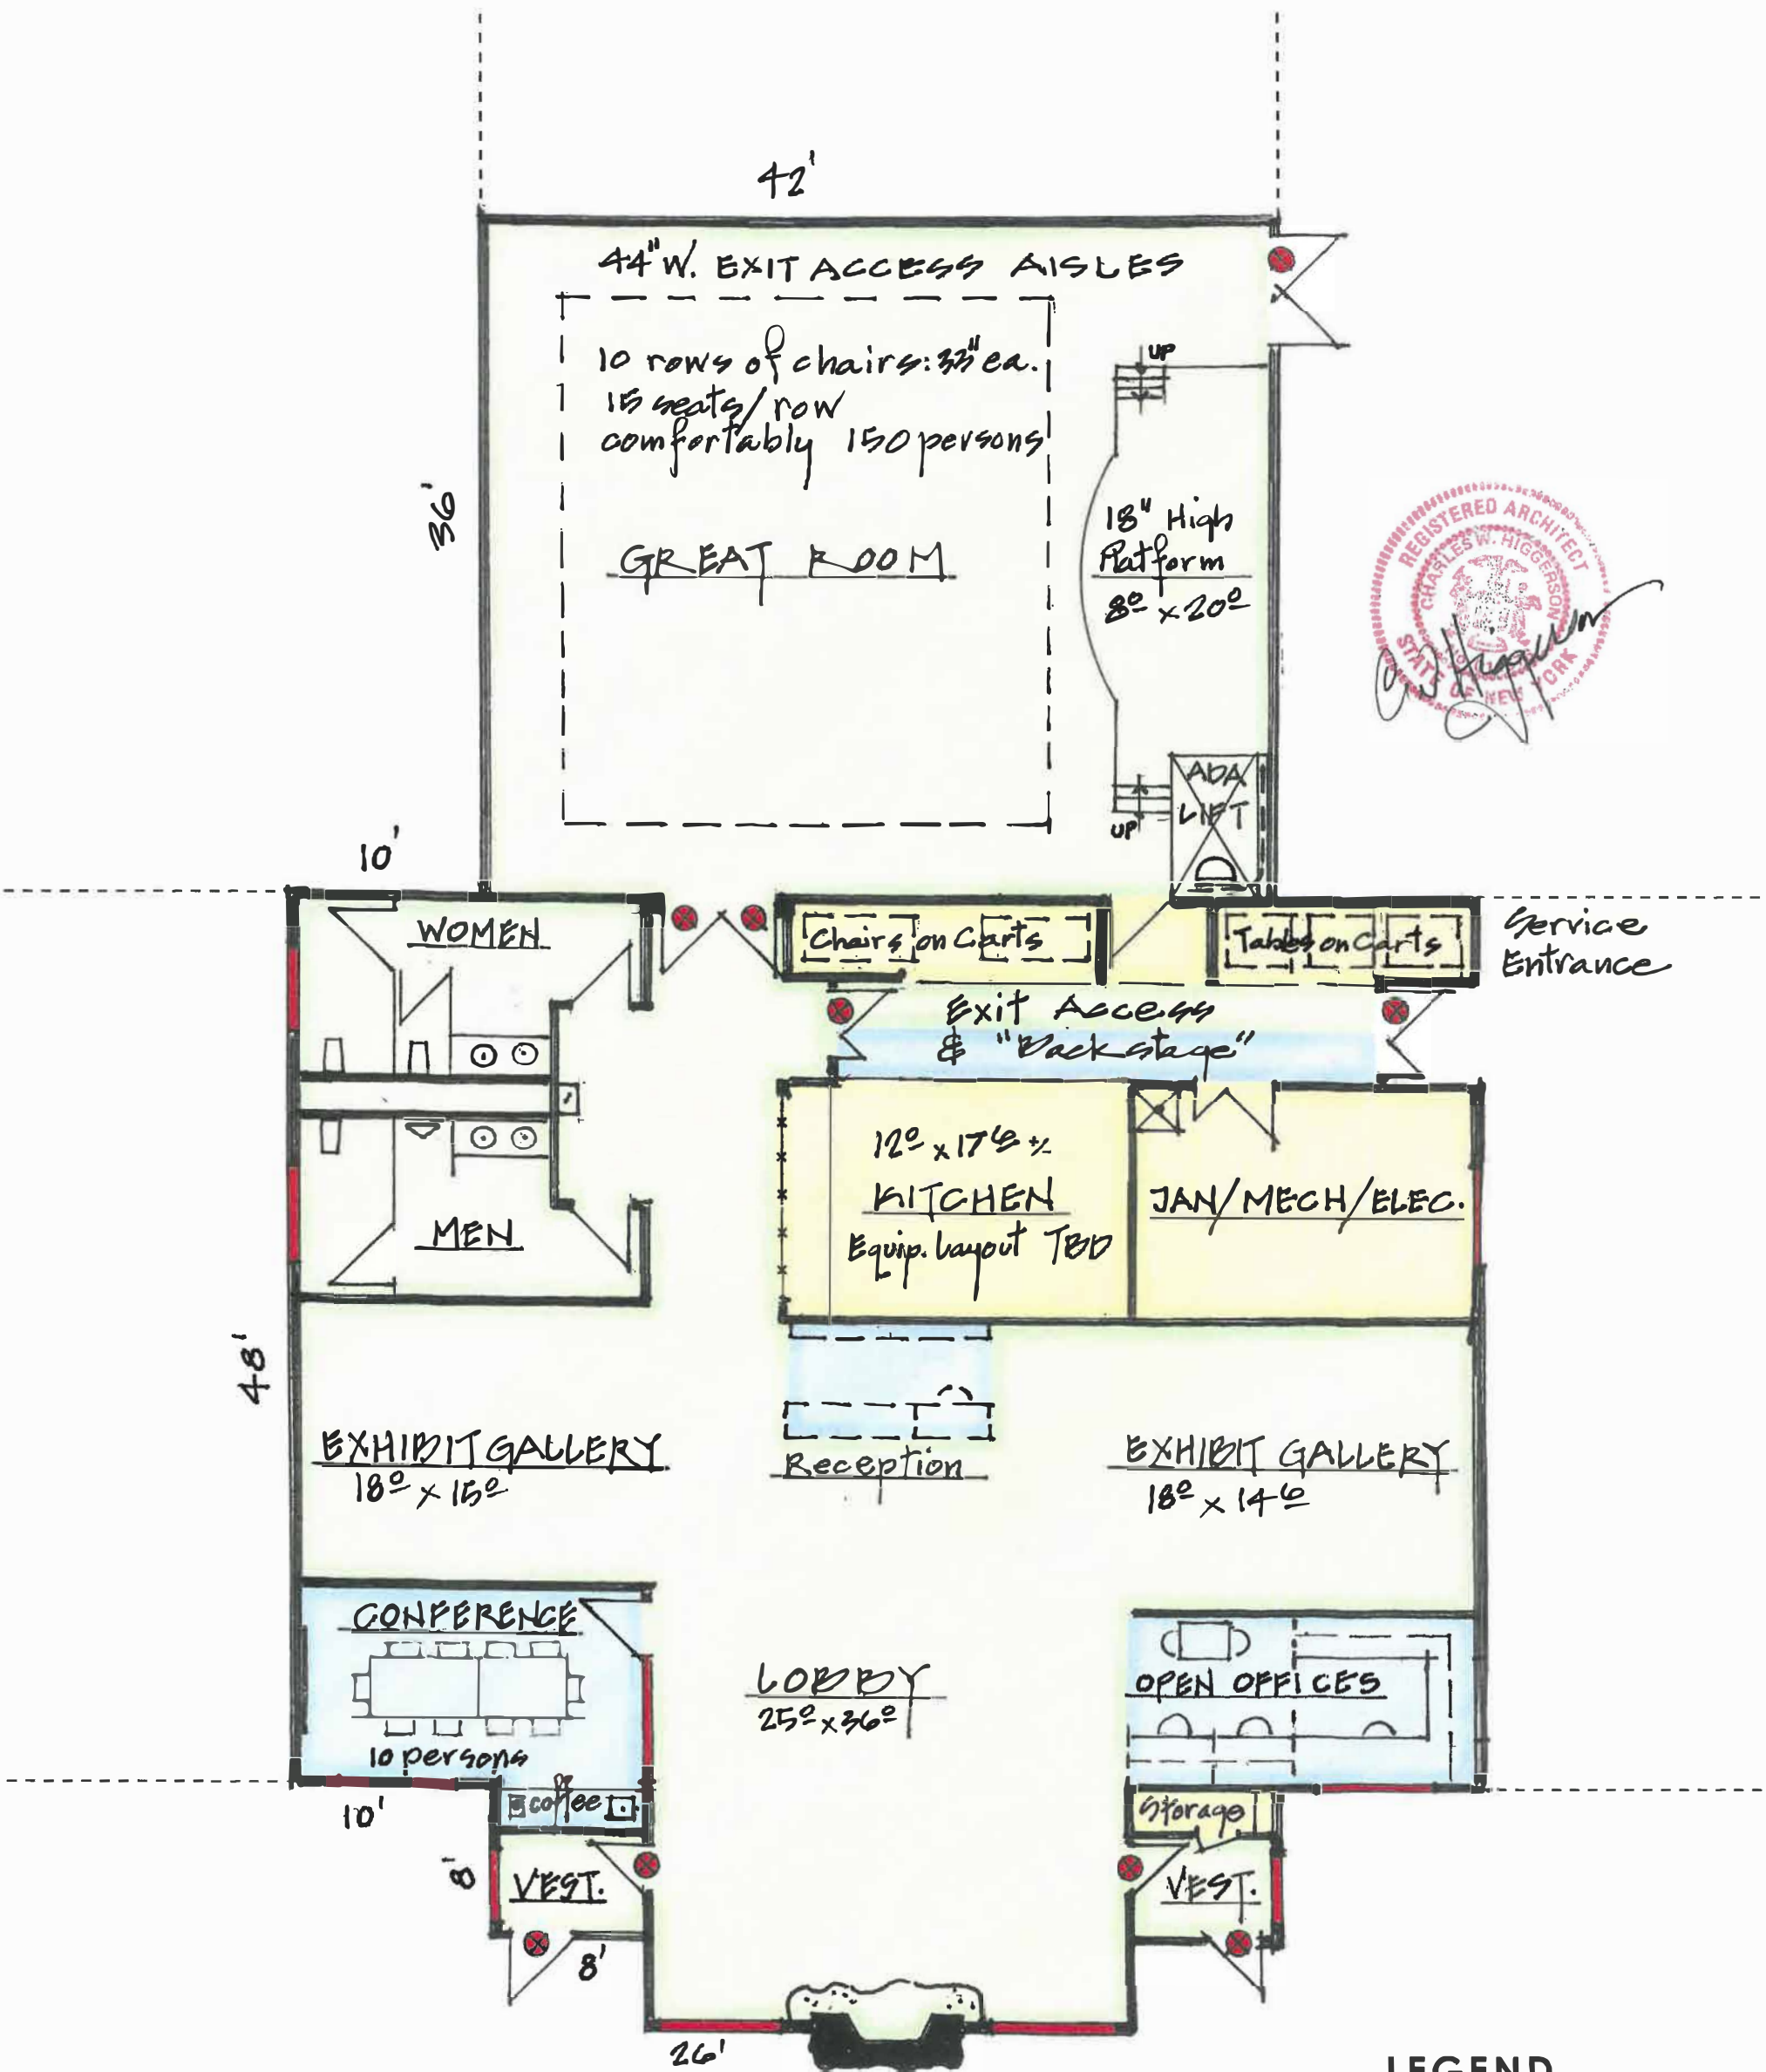 42'
44"W. EXIT ACCESS AISLES
10 rows of chairs: 33" ea.
15 seats/row
comfortably 150 persons
UP
36'
GREAT ROOM
18" High
Platform
8⁰ x 20⁰
REGISTERED ARCHITECT
CHARLES W. HIGGERSON
STATE OF NEW YORK
ADA
LIFT
UP
10'
WOMEN
Chairs on Carts
Tables on Carts
Service
Entrance
Exit Access
& "Backstage"
12⁰ x 17⁶ +/-
KITCHEN
Equip. Layout TBD
JAN/MECH/ELEC.
MEN
48'
EXHIBIT GALLERY
18⁰ x 15⁰
Reception
EXHIBIT GALLERY
18⁰ x 14⁶
CONFERENCE
10 persons
LOBBY
25⁰ x 36⁰
OPEN OFFICES
10'
coffee
Storage
8'
VEST.
VEST.
8'
26'
LEGEND